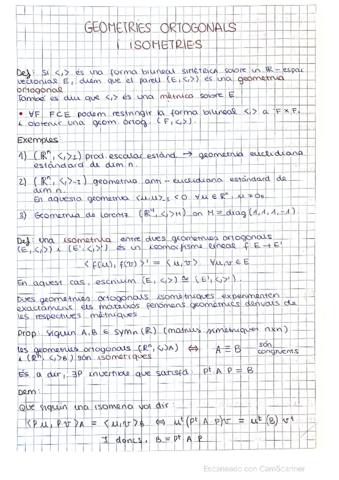 GEOMETRIES ORTOGONALS
I ISOMETRIES
Def: Si <,> és una forma bilineal simètrica sobre un R-espai
vectorial E, diem que el parell (E,<,>) és una geometria
ortogonal
També es diu que <,> és una mètrica sobre E.
• ∀F, F⊂E podem restringir la forma bilineal <,> a F×F,
i obtenir una geom. ortog. (F,<,>).
Exemples:
1) (Rⁿ,<,>I) prod. escalar estànd. → geometria euclidiana
estàndard de dim n.
2) (Rⁿ,<,>-I) geometria anti-euclidiana estàndard de
dim n.
En aquesta geometria <u,u>-I < 0 ∀u∈Rⁿ, u≠0.
3) Geometria de Lorentz (Rⁿ,<,>M) on M = diag(1,1,1,-1)
Def: una isometria entre dues geometries ortogonals
(E,<,>) i (E',<,>') és un isomorfisme lineal f: E→E'
<f(u), f(v)>' = <u,v> ∀u,v∈E
En aquest cas, escrivim (E,<,>) ≅ (E',<,>').
Dues geometries ortogonals isomètriques experimenten
exactament els mateixos fenòmens geomètrics derivats de
les respectives mètriques
Prop: Siguin A,B ∈ Symn(R) (matrius simètriques n×n)
Les geometries ortogonals (Rⁿ,<,>A) ⟺ A ≡ B són
i (Rⁿ,<,>B) són isomètriques congruents
És a dir, ∃P invertible que satisfà Pᵗ A P = B
Dem:
Que siguin una isometria vol dir:
<Pu, Pv>A = <u,v>B ⟺ uᵗ(Pᵗ A P)v = uᵗ(B)vᵗ
I doncs, B = Pᵗ A P
Escaneado con CamScanner